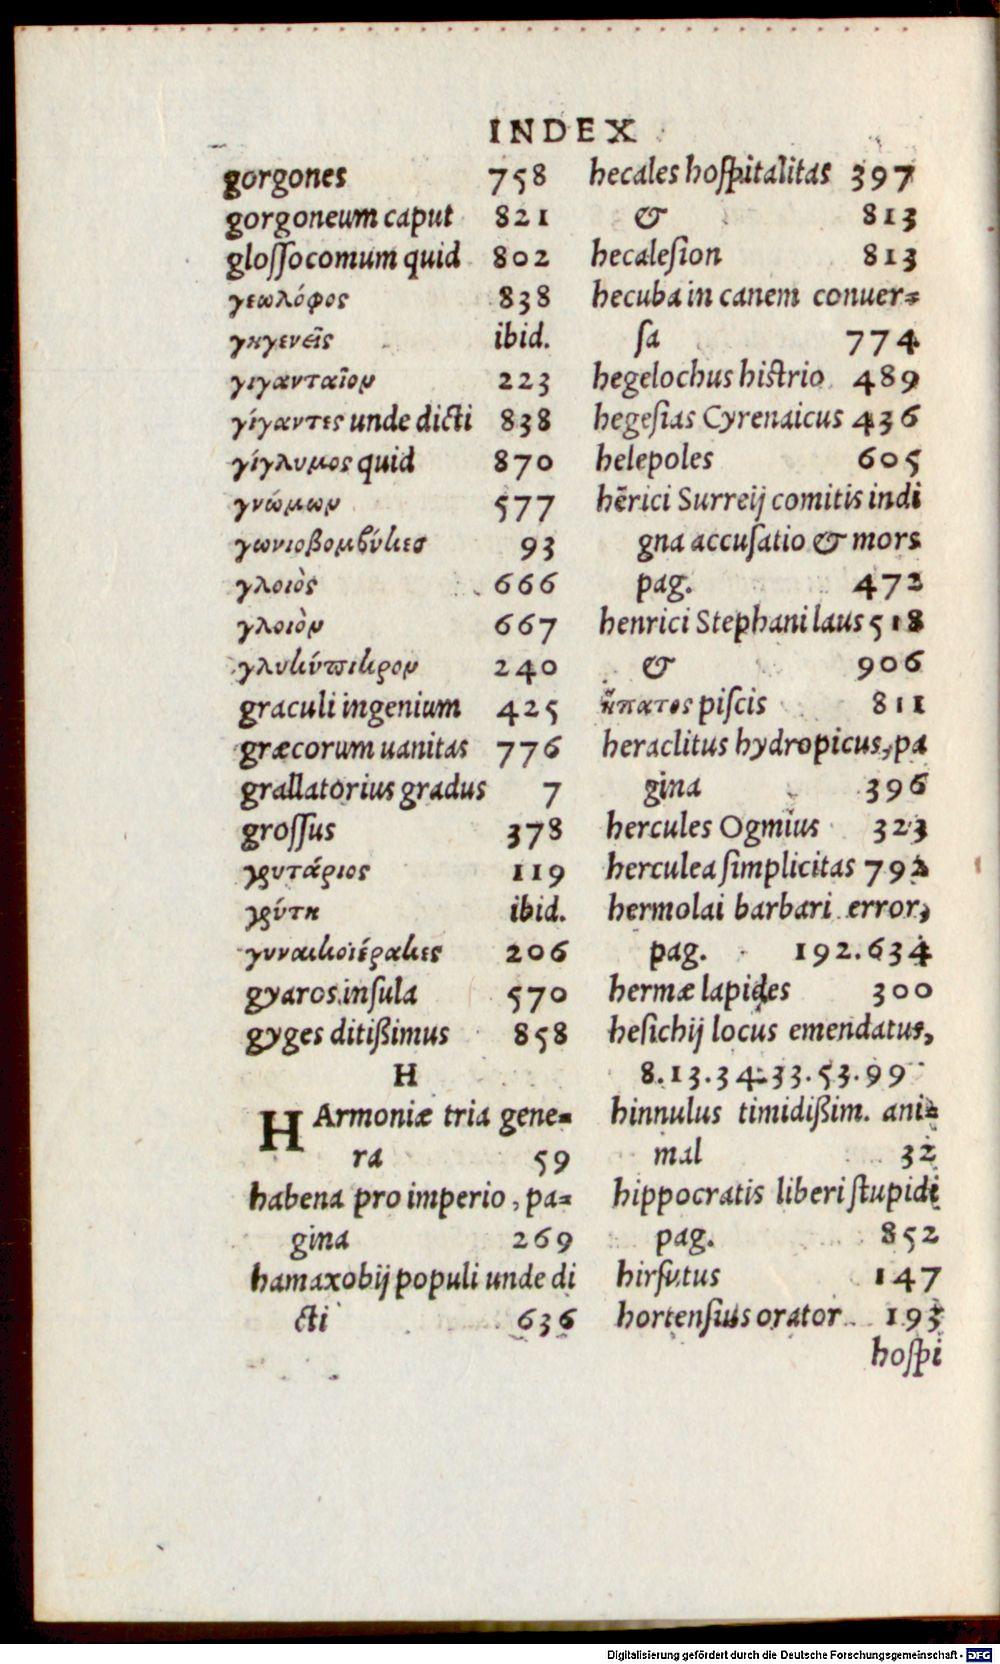 INDEX
gorgones 758
gorgoneum caput 821
gloſſocomum quid 802
γεωλόφος 838
γηγενεῖς ibid.
γιγανταῖον 223
γίγαντες unde dicti 838
γίγλυμος quid 870
γνώμων 577
γωνιοβομβύκες 93
γλοιὸς 666
γλοιὸν 667
γλυκύπικρον 240
graculi ingenium 425
græcorum uanitas 776
grallatorius gradus 7
groſſus 378
γρυτάριος 119
γρύτη ibid.
γυναικοϊέρακες 206
gyaros inſula 570
gyges ditißimus 858
H
HArmoniæ tria gene=
ra 59
habena pro imperio, pa=
gina 269
hamaxobij populi unde di
cti 636
hecales hoſpitalitas 397
& 813
hecaleſion 813
hecuba in canem conuer=
ſa 774
hegelochus histrio 489
hegeſias Cyrenaicus 436
helepoles 605
hẽrici Surreij comitis indi
gna accuſatio & mors
pag. 472
henrici Stephani laus 518
& 906
ἥπατος piſcis 811
heraclitus hydropicus, pa
gina 396
hercules Ogmius 323
herculea ſimplicitas 792
hermolai barbari error,
pag. 192.634
hermæ lapides 300
heſichij locus emendatus,
8.13.34.33.53.99
hinnulus timidißim. ani=
mal 32
hippocratis liberi ſtupidi
pag. 852
hirſutus 147
hortenſius orator 193
hoſpi
Digitalisierung gefördert durch die Deutsche Forschungsgemeinschaft - DFG